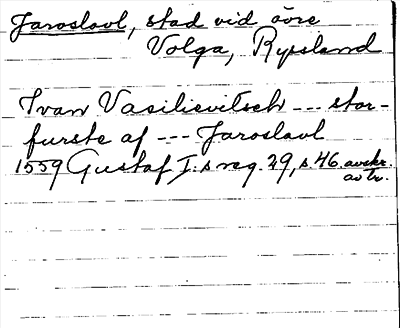 Jaroslavl, stad vid övre
Volga, Ryssland
Ivan Vasilievitsch --- stor-
furste af --- Jaroslavl
1559 Gustaf I:s reg. 29, s. 46. avskr.
avtr.